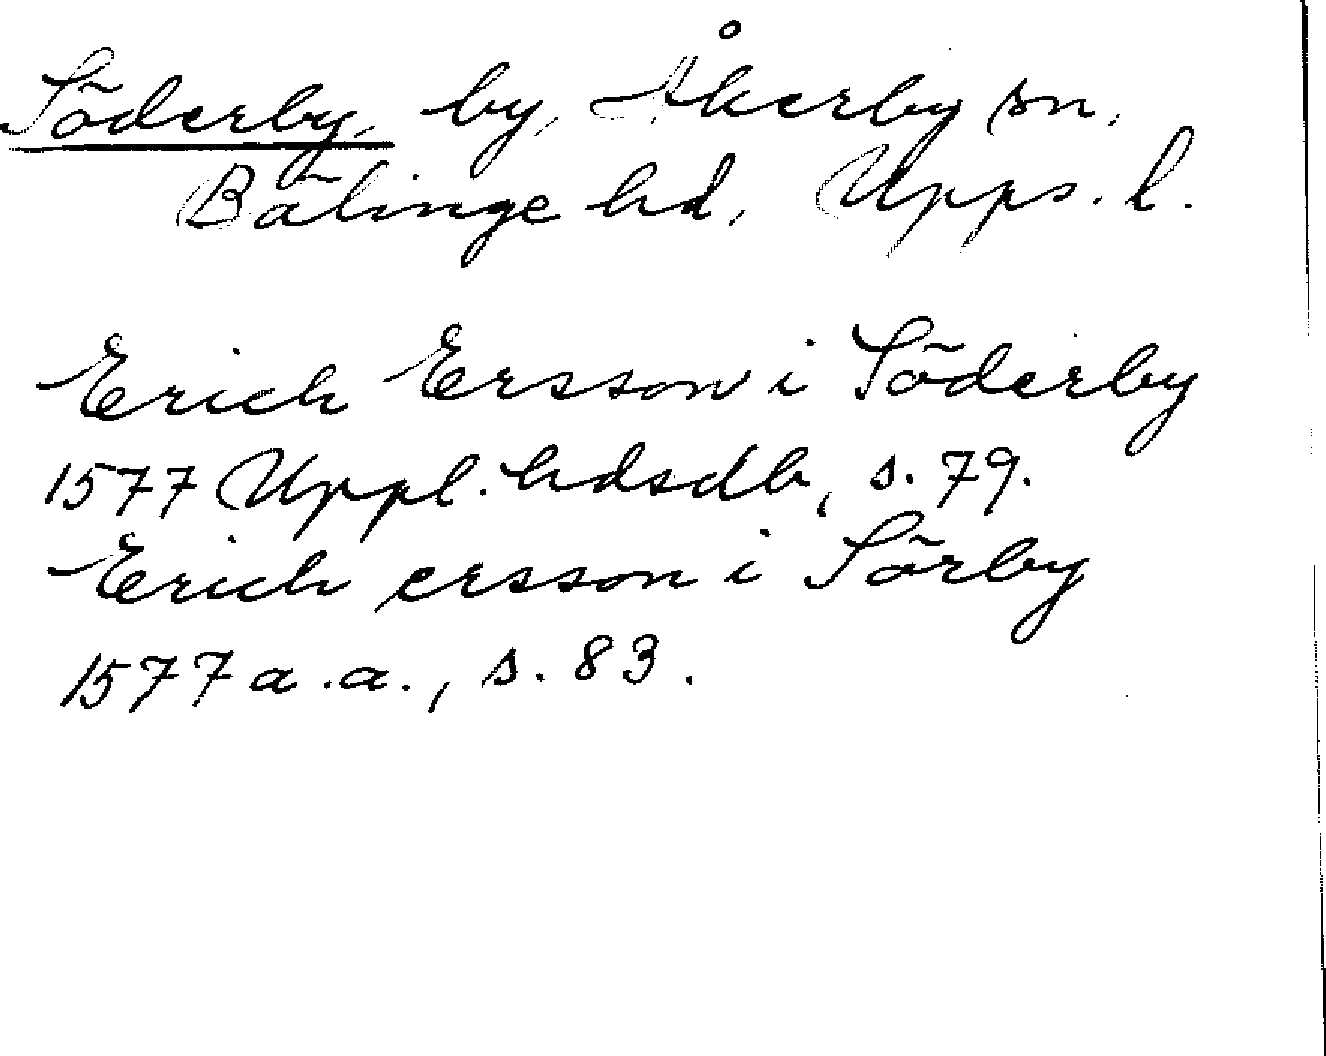 Söderby, by, Åkerby sn,
Bälinge hd, Upps. l.
Erich Ersson i Söderby
1577 Uppl. hdsdb, s. 79.
Erich ersson i Sörby
1577 a.a., s. 83.